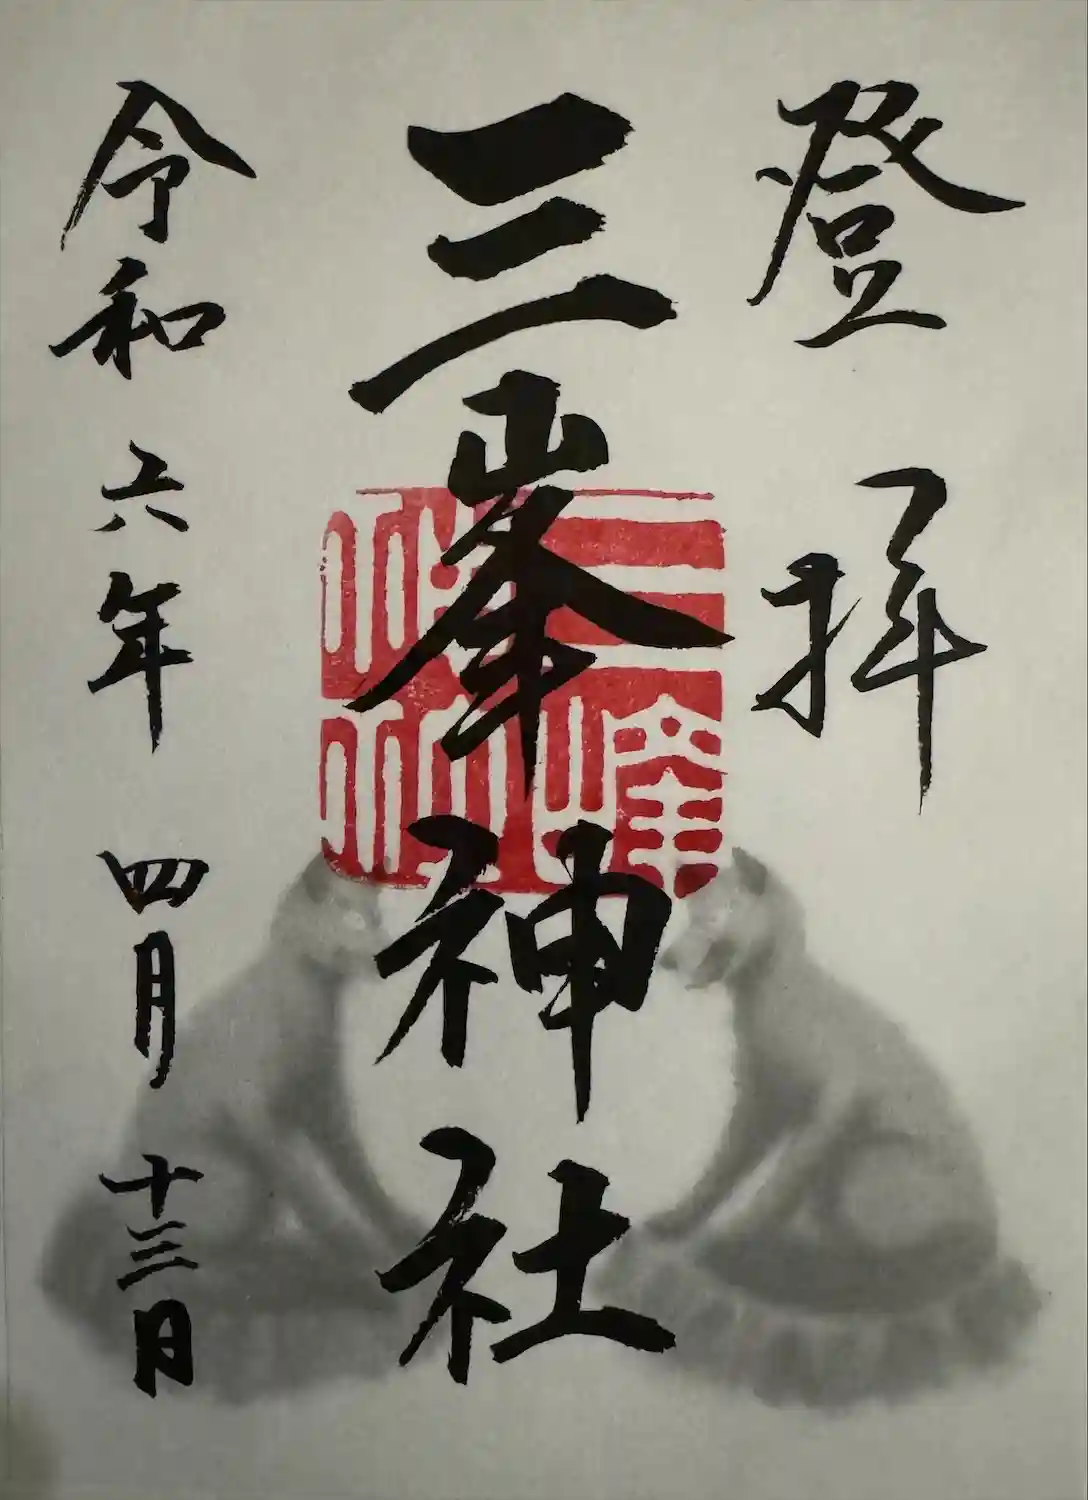 登拝
三峯神社
令和六年四月十三日